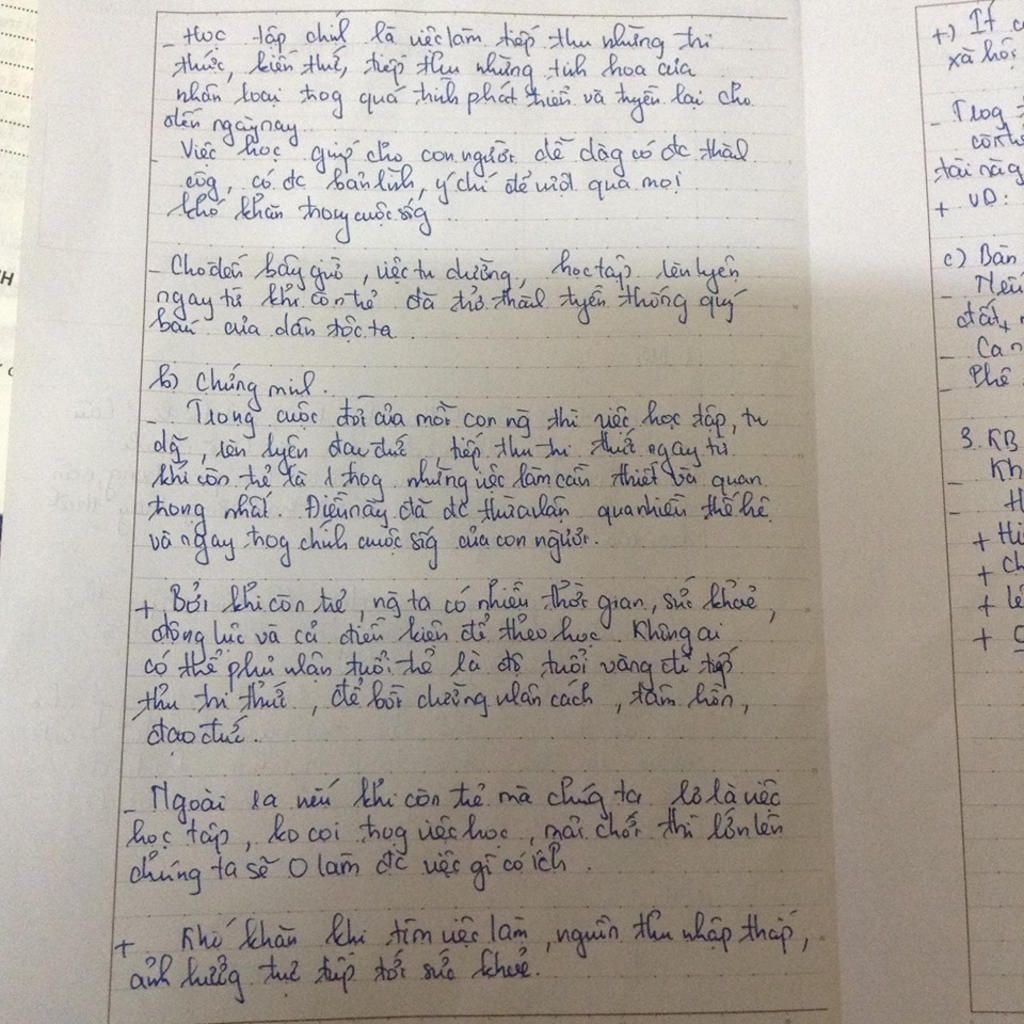 - Học tập chính là việc làm tiếp thu những tri
thức, kiến thức, tiếp thu những tinh hoa của
nhân loại trog quá trình phát triển và truyền lại cho
đến ngày nay.
- Việc học giúp cho con người dễ dàg có đc thàh
côg, có đc bản lĩnh, ý chí để vượt qua mọi
khó khăn trong cuộc sốg
- Cho đến bây giờ, việc tu dưỡng, học tập, rèn luyện
ngay từ khi còn trẻ đã trở thàh truyền thống quý
báu của dân tộc ta.
b) Chứng minh.
- Trong cuộc đời của mỗi con ng thì việc học tập, tu
dg, rèn luyện đạo đức, tiếp thu tri thức ngay từ
khi còn trẻ là 1 trog những việc làm cần thiết và quan
trọng nhất. Điều này đã đc thừa nhận qua nhiều thế hệ
và ngay trog chính cuộc sốg của con người.
+ Bởi khi còn trẻ, ng ta có nhiều thời gian, sức khoẻ,
động lực và cả điều kiện để theo học. Không ai
có thể phủ nhận tuổi trẻ là độ tuổi vàng để tiếp
thu tri thức, để bồi dưỡng nhân cách, tâm hồn,
đạo đức.
- Ngoài ra nếu khi còn trẻ mà chúg ta lơ là việc
học tập, ko coi trọg việc học, mải chơi thì lớn lên
chúng ta sẽ 0 làm đc việc gì có ích.
+ Khó khăn khi tìm việc làm, nguồn thu nhập thấp,
ảnh hưởng trực tiếp tới sức khoẻ.
+) Ít
xã hội
- Trog
còn
tài năng
+ VD:
c) Bàn
- Nếu
đất
- Ca
- Phê
3. KB
- Kh
- H
+ Hi
+ Ch
+ lê
+